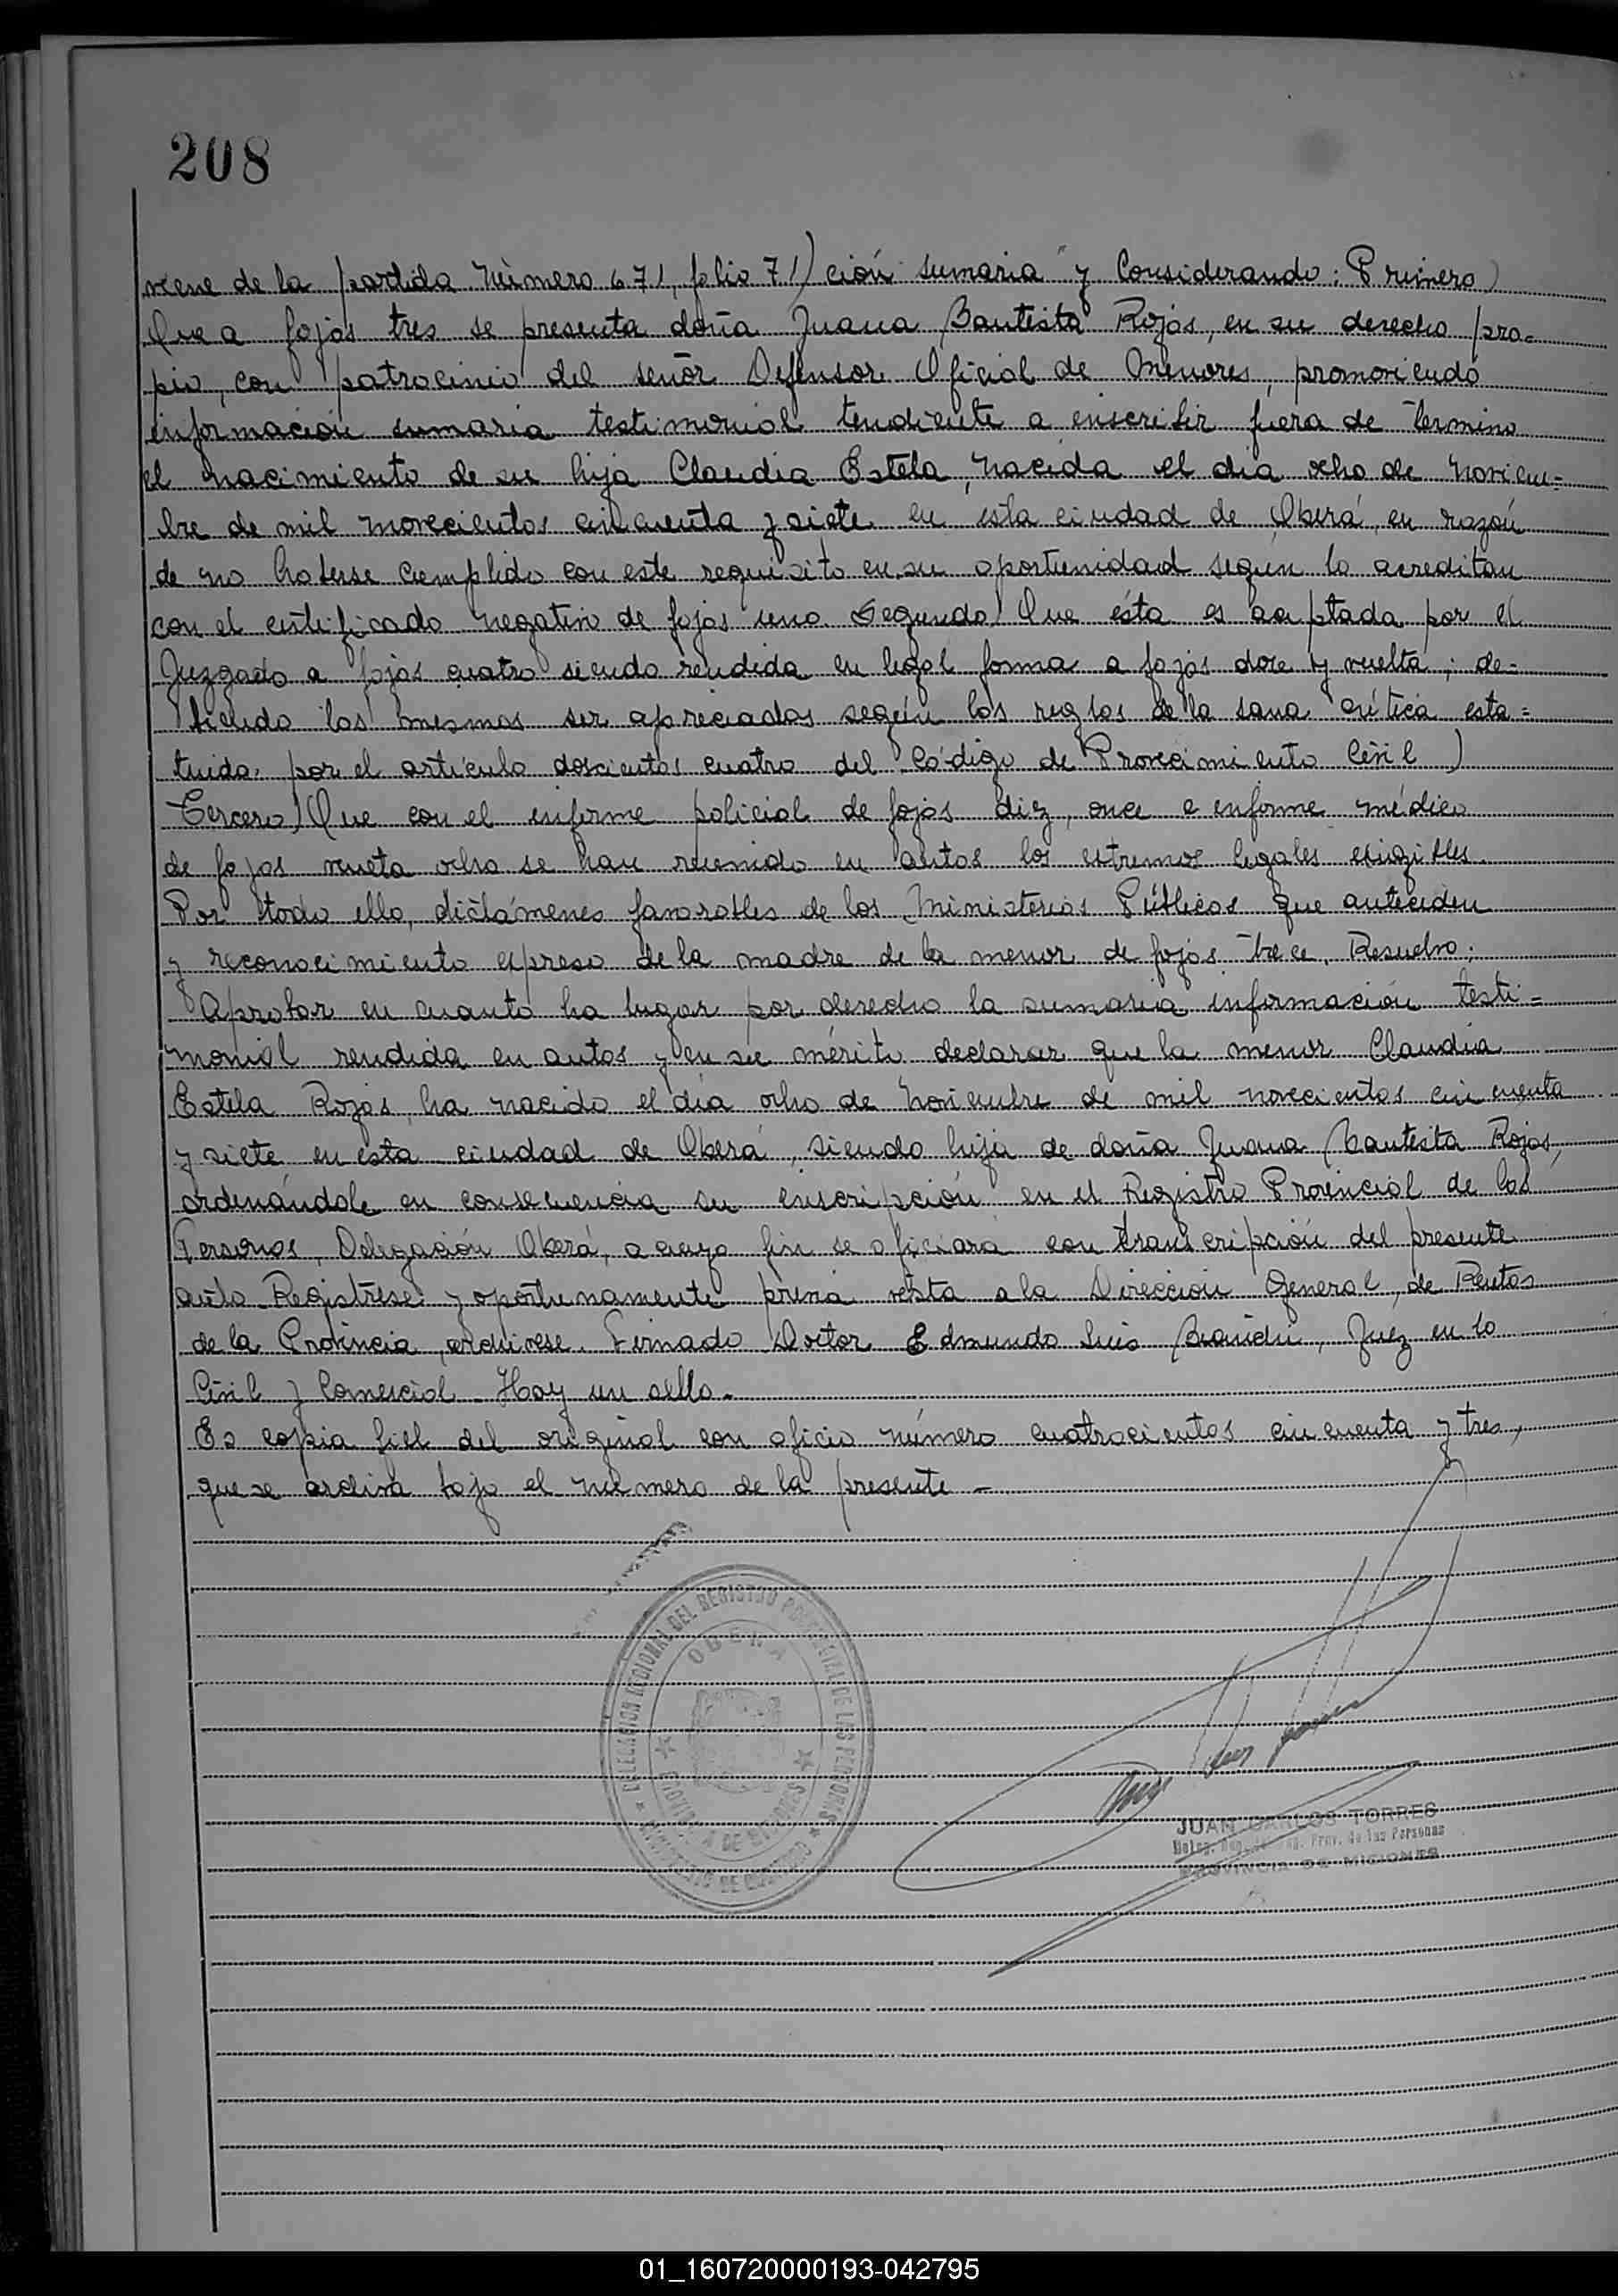 208
viene de la partida número 671, folio 71) ción sumaria y Considerando: Primero)
Que a fojas tres se presenta doña Juana Bautista Rojas, en su derecho pro-
pio, con patrocinio del señor Defensor Oficial de Menores, promoviendo
información sumaria testimonial tendiente a inscribir fuera de término
el nacimiento de su hija Claudia Estela, nacida el día ocho de noviem=
bre de mil novecientos cincuenta y siete en esta ciudad de Oberá, en razón
de no haberse cumplido con este requisito en su oportunidad según lo acreditan
con el certificado negativo de fojas uno Segundo) Que ésta es aceptada por el
Juzgado a fojas cuatro siendo rendida en legal forma a fojas doce y vuelta; de=
biendo los mismos ser apreciados según las reglas de la sana crítica esta=
tuida, por el artículo doscientos cuatro del Código de Procecimiento Civil)
Tercero) Que con el informe policial de fojas diez, once e informe médico
de fojas vueta ocho se han reunido en autos los extremos legales exigibles.
Por todo ello, dictámenes favorables de los Ministerios Públicos que anteceden
y reconocimiento expreso de la madre de la menor de fojas trece, Resuelvo:
Aprobar en cuanto ha lugar por derecho la sumaria información testi=
monial rendida en autos y en su mérito declarar que la menor Claudia
Estela Rojas, ha nacido el día ocho de noviembre de mil novecientos cincuenta
y siete en esta ciudad de Oberá, siendo hija de doña Juana Bautista Rojas,
ordenándole en consecuencia su inscripción en el Registro Provincial de las
Personas, Delegación Oberá, a cuyo fin se oficiará con transcripción del presente
auto. Regístrese y oportunamente previa vista a la Dirección General, de Rentas
de la Provincia, archívese. Firmado Doctor Edmundo Luis, Juez en lo
Civil y Comercial. Hay un sello.-
Es copia fiel del original con oficio número cuatrocientos cincuenta y tres,
que se archiva bajo el número de la presente -
DELEGACION REGIONAL DEL REGISTRO PROVINCIAL DE LAS PERSONAS
OBERA
JUAN CARLOS TORRES
Deleg. Reg. del Reg. Prov. de las Personas
PROVINCIA DE MISIONES
01_160720000193-042795